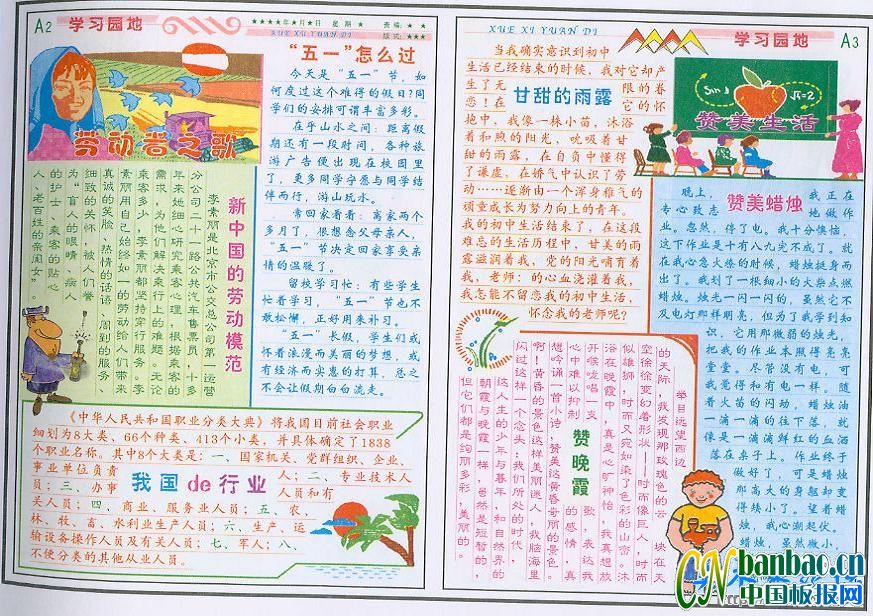 A2 学习园地
★★★★年★月★日 星期 ★ 责编：★ ★
XUE XI YUAN DI 版式：★★★
劳动者之歌
“五一”怎么过
今天是“五一”节，如
何度过这个难得的假日？同
学们的安排可谓丰富多彩。
在乎山水之间：距离假
期还有一段时间，各种旅
游广告便出现在校园里
了，更多同学宁愿与同学结
伴而行，游山玩水。
常回家看看：离家两个
多月了，很想念父母亲人，
“五一”节决定回家享受亲
情的温暖了。
留校学习忙：有些学生
忙着学习，“五一”节也不
敢松懈，正好用来补习。
“五一”长假，学生们或
怀着浪漫而美丽的梦想，或
有经济而实惠的打算，总之
不会让假期白白流走。
新中国的劳动模范
李素丽是北京市公交总公司第一运营
分公司二十一路公共汽车售票员，十多
年来她细心研究乘客心理，根据乘客的
需求，为他们解决乘行上的难题。无论
乘客多少，李素丽都坚持穿行服务。李
素丽用自己始终如一的劳动给人们带来
真诚的笑脸、热情的话语、周到的服务、
细致的关怀，被人们誉
为“盲人的眼睛，病人
的护士，乘客的贴心
人、老百姓的亲闺女”。
《中华人民共和国职业分类大典》将我国目前社会职业
细划为8大类、66个种类、413个小类，并具体确定了1838
个职业名称。其中8个大类是：一、国家机关、党群组织、企业、
事业单位负责人；二、专业技术人
员；三、办事人员和有
关人员；四、商业、服务业人员；五、农、
林、牧、畜、水利业生产人员；六、生产、运
输设备操作人员及有关人员；七、军人；八、
不便分类的其他从业人员。
我国de行业
XUE XI YUAN DI
学习园地 A3
甘甜的雨露
当我确实意识到初中
生活已经结束的时候，我对它却产
生了无限的眷
恋！在它的怀
抱中，我像一株小苗，沐浴
着和煦的阳光，吮吸着甘
甜的雨露，在自负中懂得
了谦虚，在娇气中认识了劳
动……逐渐由一个浑身稚气的
顽童成长为努力向上的青年。
我的初中生活结束了，在这段
难忘的生活历程中，甘美的雨
露滋润着我，党的阳光哺育着
我，老师：的心血浇灌着我，
我怎能不留恋我的初中生活，
怀念我的老师呢？
Sin
√π=2
赞美生活
赞美蜡烛
晚上，我正在
专心致志地做作
业。忽然，停了电。我十分懊恼，
这下作业是十有八九完不成了。就
在我心急火燎的时候，蜡烛挺身而
出了。我划了一根细小的火柴点燃
蜡烛。烛光一闪一闪的，虽然它不
及电灯那样明亮，但为了我学到知
识，它用那微弱的烛光，
把我的作业本照得亮亮
堂堂。尽管没有电，可
我觉得和有电一样。随
着火苗的闪动，蜡烛油
一滴一滴的往下落，就
像是一滴滴鲜红的血洒
落在桌子上。作业终于
做好了，可是蜡烛
那高大的身躯却变
得矮小了。望着蜡
烛，我心潮起伏。
蜡烛，虽然微小，
赞晚霞
举目远望西边
的天际，我发现那玫瑰色的云块在天
空徐徐变幻着形状——时而像巨人，时而
似雄狮，时而又宛如染了色彩的山峦。沐
浴在晚霞中，真是心旷神怡，我真想放
开喉咙唱一支歌，表达我
心中难以抑制的感情，真
想吟诵一首小诗，赞美这黄昏奇丽的景色。
啊！黄昏的景色这样美丽迷人，我脑海里
闪过这样一个念头：我们所处的时代，
这人生的少年与暮年，和自然界的
朝霞与晚霞一样，虽然是短暂的，
但它们都是绚丽多彩，美丽的。
CN banbao.cn
中国板报网